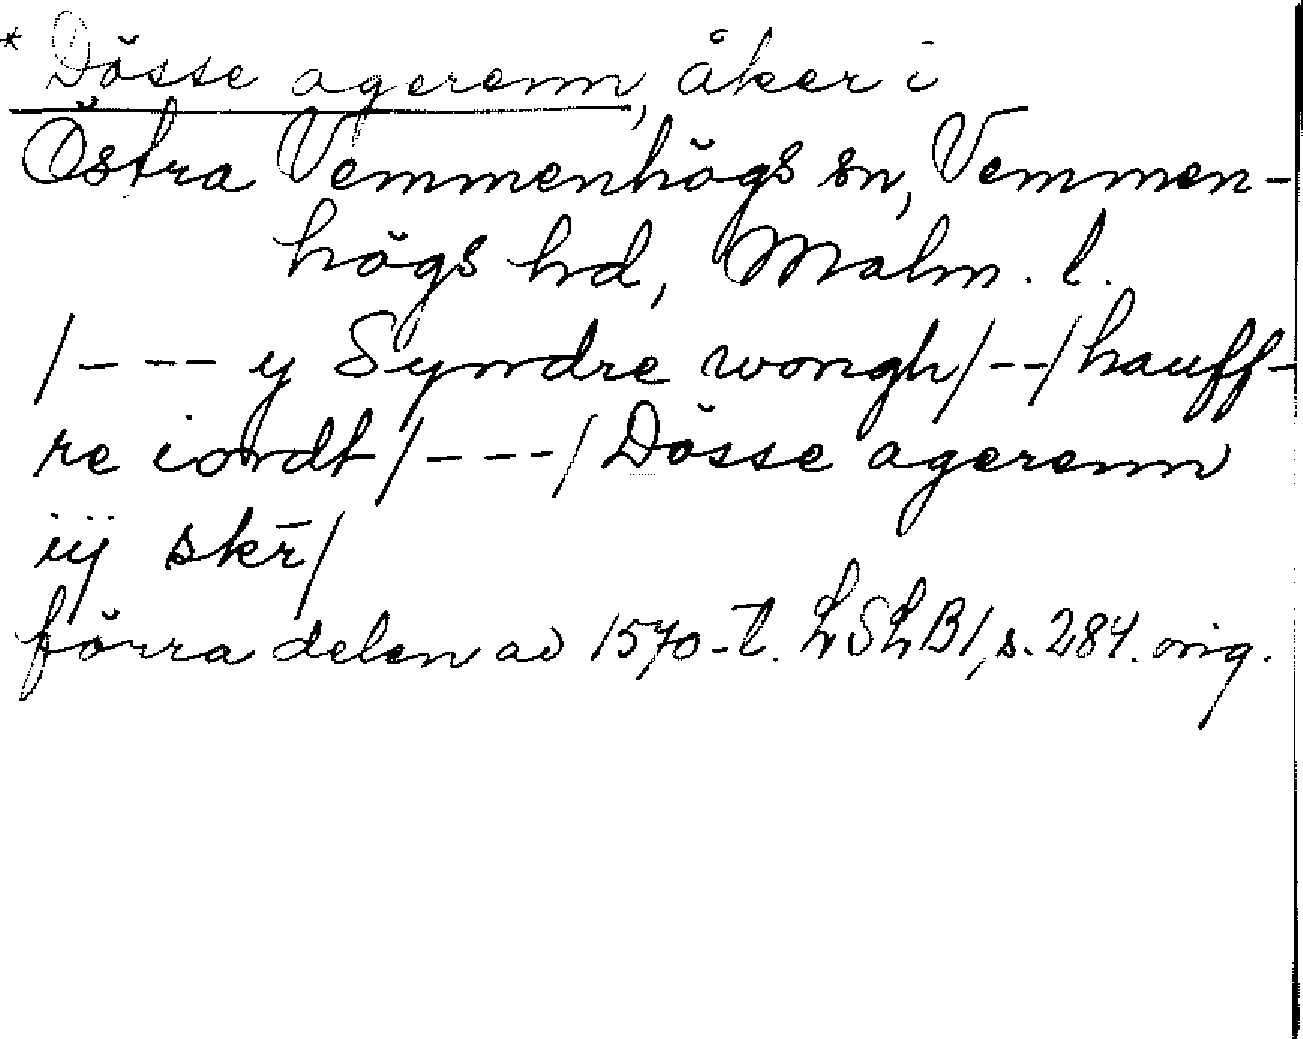 * Dösse agerenn, åker i
Östra Vemmenhögs sn, Vemmen-
högs hd, Malm. l.
/--- y Syndre wongh/--/hauff-
re iordt/---/Dösse agerenn
iij skr̄/
förra delen av 1570-t. LSLB1, s. 284. orig.